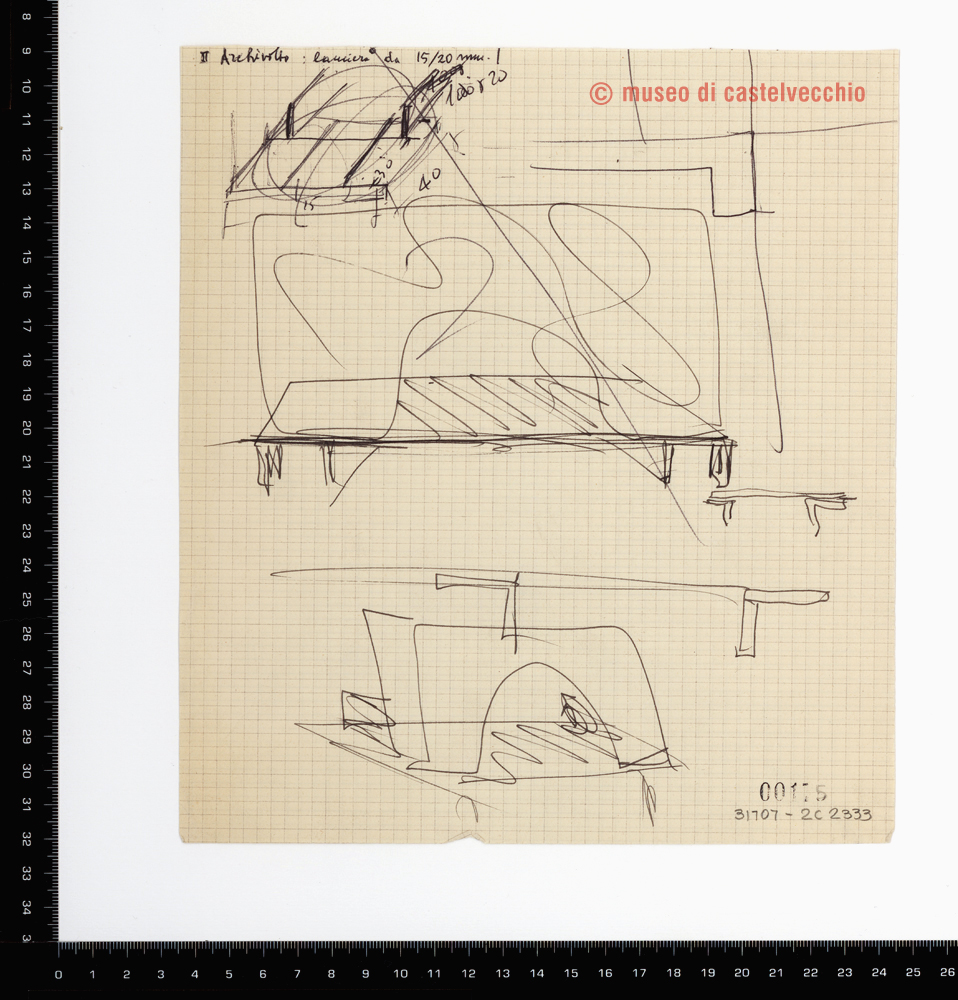 II Archivolto : lamiera da 15/20 mm. !
100 x 20
© museo di castelvecchio
40
15
31707 - 2C 2333
8
9
10
11
12
13
14
15
16
17
18
19
20
21
22
23
24
25
26
27
28
29
30
31
32
33
34
0 1 2 3 4 5 6 7 8 9 10 11 12 13 14 15 16 17 18 19 20 21 22 23 24 25 26